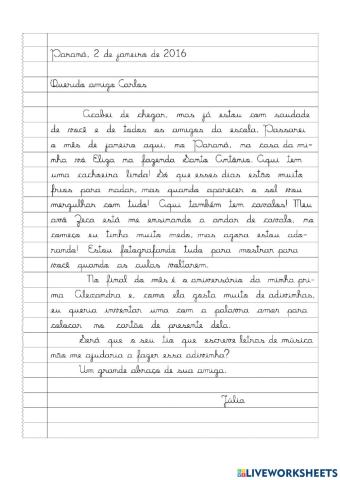 Paraná, 2 de janeiro de 2016
Querido amigo Carlos
Acabei de chegar, mas já estou com saudade
de você e de todos os amigos da escola. Passarei
o mês de janeiro aqui, no Paraná, na casa da mi-
nha vó Eliza na fazenda Santo Antônio. Aqui tem
uma cachoeira linda! Só que esses dias estão muito
frios para nadar, mas quando aparecer o sol vou
mergulhar com tudo! Aqui também tem cavalos! Meu
avô Zeca está me ensinando a andar de cavalo, no
começo eu tinha muito medo, mas agora estou ado-
rando! Estou fotografando tudo para mostrar para
você quando as aulas voltarem.
No final do mês é o aniversário da minha pri-
ma Alexandra e, como ela gosta muito de adivinhas,
eu queria inventar uma com a palavra amor para
colocar no cartão de presente dela.
Será que o seu tio que escreve letras de música
não me ajudaria a fazer essa adivinha?
Um grande abraço de sua amiga.
Júlia
LIVEWORKSHEETS